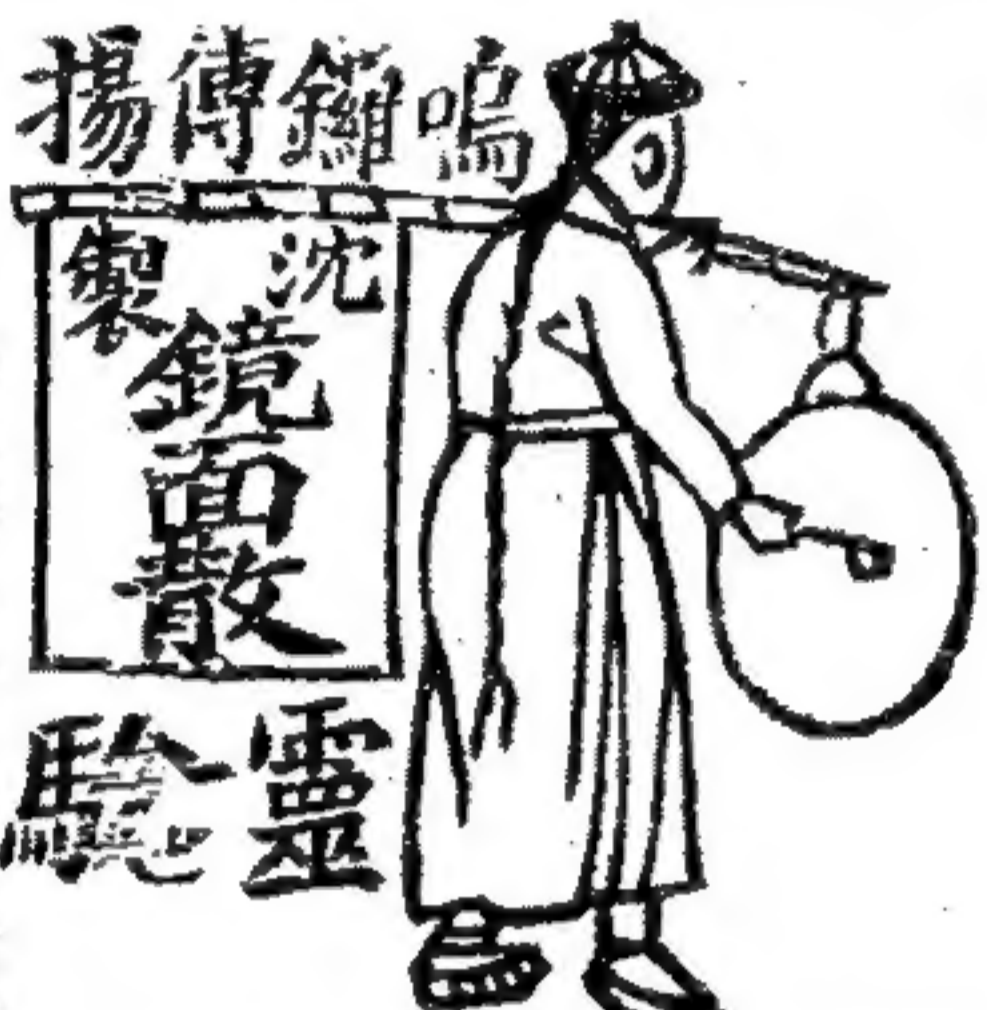 鳴鑼傳揚
沈製
鏡面散
靈驗